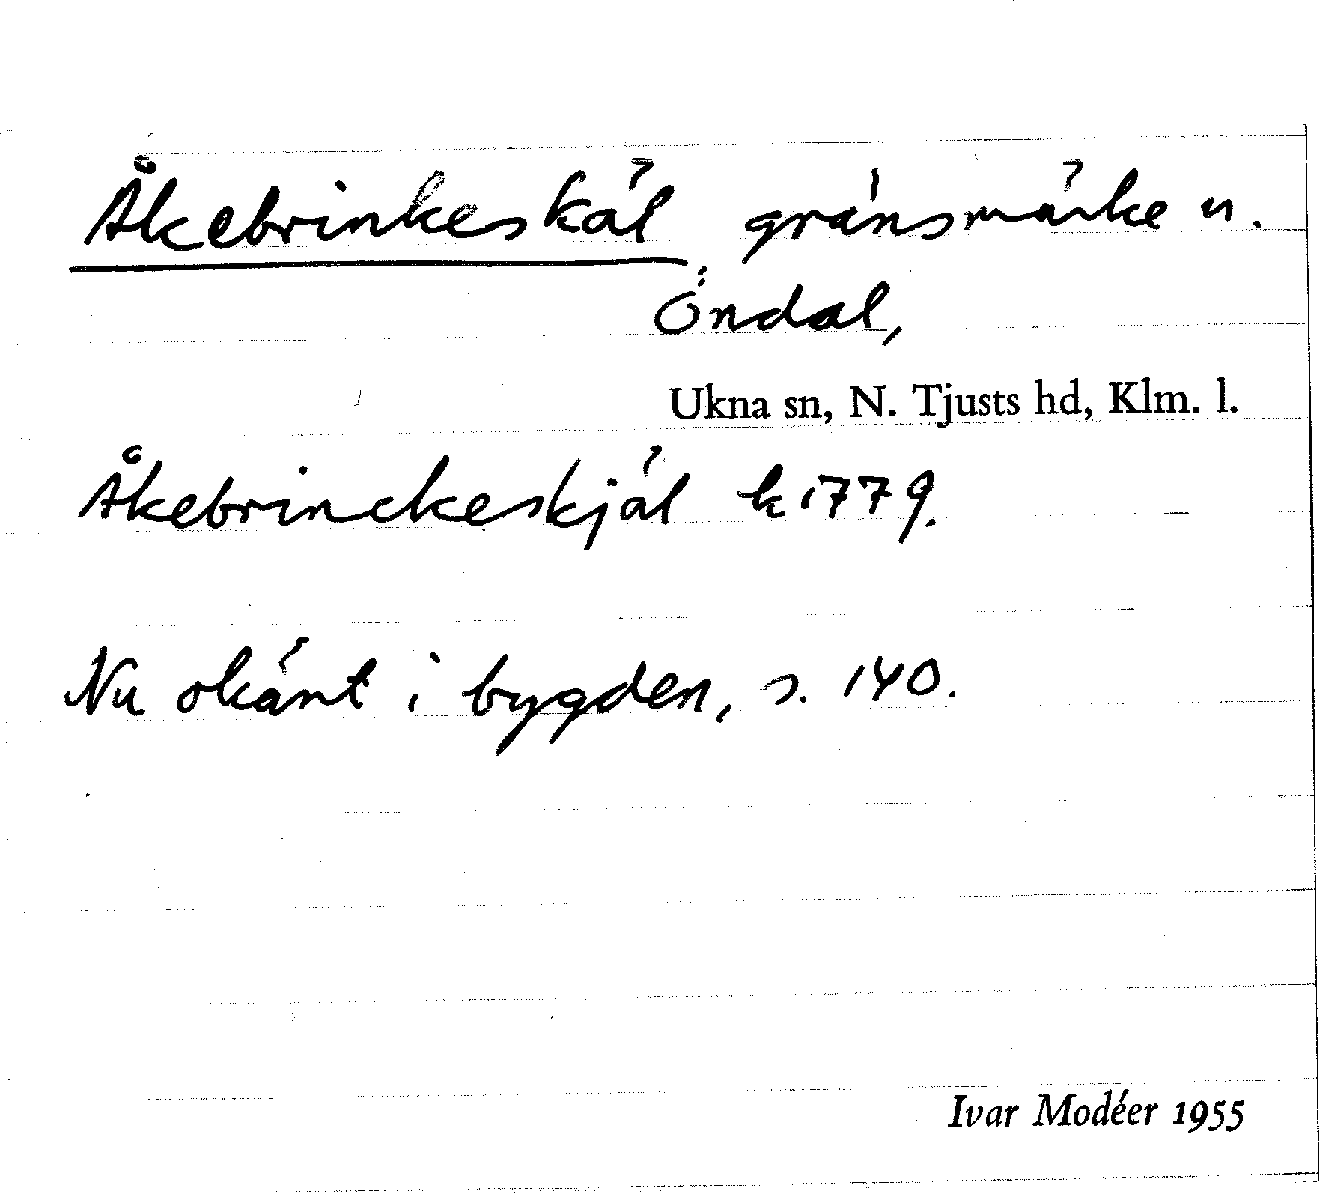 Åkebrinkeskäl, gränsmärke u.
Öndal,
Ukna sn, N. Tjusts hd, Klm. l.
Åkebrinckeskjäl k 1779.
Nu okänt i bygden, s. 140.
Ivar Modéer 1955